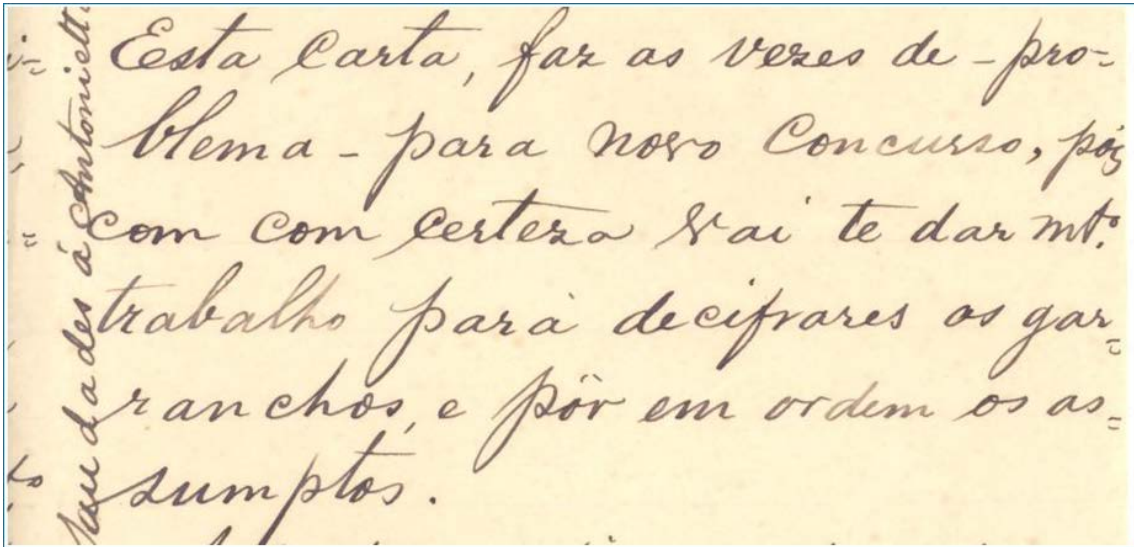 Esta Carta, faz as vezes de - pro-
blema - para novo Concurso, pois
com com certeza vai te dar mtº
trabalho para decifrares os gar=
ranchos, e pôr em ordem os as=
sumptos.
Saudades á Antoniett